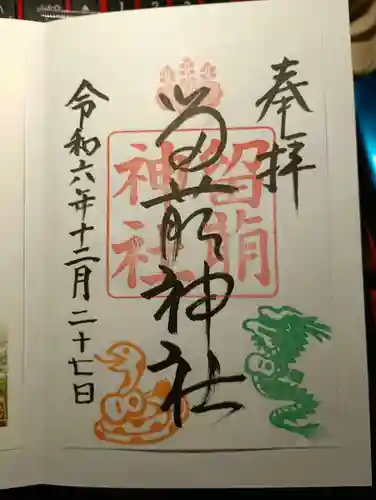 奉拝
留萌神社
令和六年十二月二十七日
留萌
神社